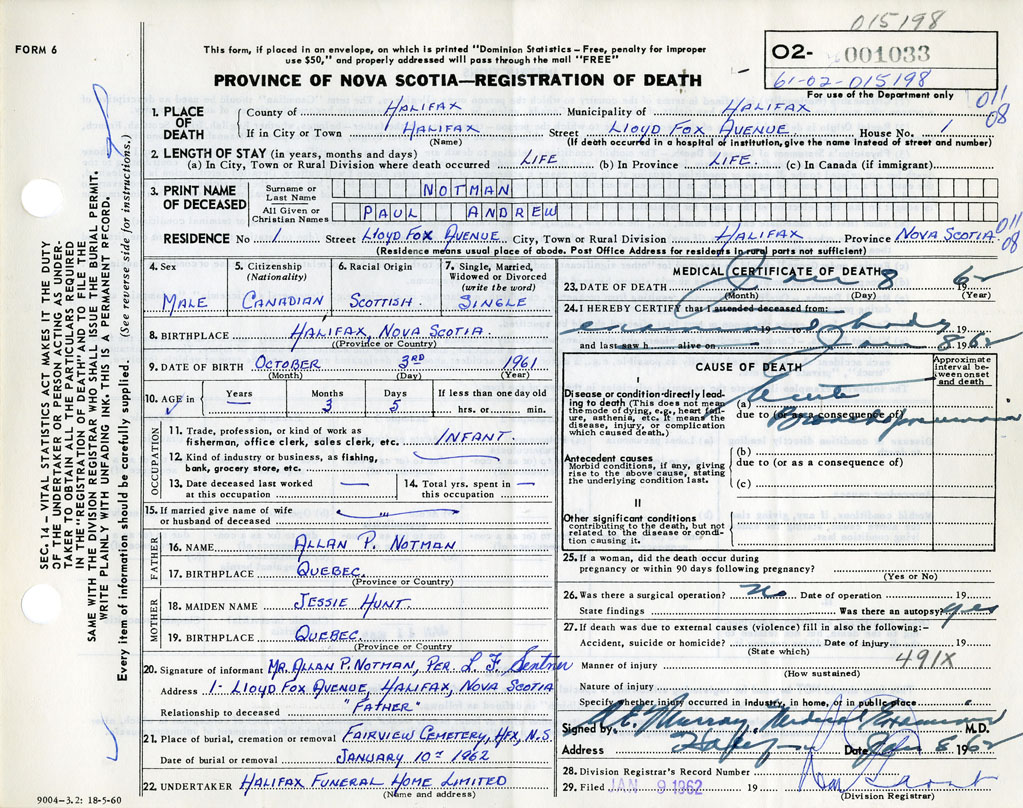 015198
FORM 6
This form, if placed in an envelope, on which is printed "Dominion Statistics – Free, penalty for improper
use $50," and properly addressed will pass through the mail "FREE"
PROVINCE OF NOVA SCOTIA—REGISTRATION OF DEATH
O2- 001033
61-02-015198
For use of the Department only
011
08
1. PLACE OF DEATH
County of HALIFAX Municipality of HALIFAX
If in City or Town HALIFAX Street LLOYD FOX AVENUE House No. 1
(Name) (If death occurred in a hospital or institution, give the name instead of street and number)
2. LENGTH OF STAY (in years, months and days)
(a) In City, Town or Rural Division where death occurred LIFE (b) In Province LIFE (c) In Canada (if immigrant)
3. PRINT NAME OF DECEASED
Surname or Last Name NOTMAN
All Given or Christian Names PAUL ANDREW
011
08
RESIDENCE No 1 Street LLOYD FOX AVENUE City, Town or Rural Division HALIFAX Province NOVA SCOTIA
(Residence means usual place of abode. Post Office Address for residents rural parts not sufficient)
4. Sex
MALE
5. Citizenship
(Nationality)
CANADIAN
6. Racial Origin
SCOTTISH
7. Single, Married,
Widowed or Divorced
(write the word)
SINGLE
8. BIRTHPLACE HALIFAX, NOVA SCOTIA.
(Province or Country)
9. DATE OF BIRTH OCTOBER 3RD 1961
(Month) (Day) (Year)
10. AGE in
Years Months Days If less than one day old
3 5 hrs. or min.
OCCUPATION
11. Trade, profession, or kind of work as
fisherman, office clerk, sales clerk, etc. INFANT.
12. Kind of industry or business, as fishing,
bank, grocery store, etc.
13. Date deceased last worked
at this occupation
14. Total yrs. spent in
this occupation
15. If married give name of wife
or husband of deceased
FATHER
16. NAME ALLAN P. NOTMAN
17. BIRTHPLACE QUEBEC.
(Province or Country)
MOTHER
18. MAIDEN NAME JESSIE HUNT.
19. BIRTHPLACE QUEBEC.
(Province or Country
20. Signature of informant MR. ALLAN P. NOTMAN, PER L F Sentner
Address 1- LLOYD FOX AVENUE, HALIFAX, NOVA SCOTIA
Relationship to deceased "FATHER"
21. Place of burial, cremation or removal FAIRVIEW CEMETERY, HFX, N.S.
Date of burial or removal JANUARY 10th 1962
22. UNDERTAKER HALIFAX FUNERAL HOME LIMITED
(Name and address)
9004—3.2: 18-5-60
MEDICAL CERTIFICATE OF DEATH
23. DATE OF DEATH Jan 8 62
(Month) (Day) (Year)
24. I HEREBY CERTIFY that I attended deceased from:
examined body
19 to 19
and last saw h alive on Jan 8 1962
CAUSE OF DEATH
Approximate
interval between
onset
and death
I
Disease or condition directly leading
to death (This does not mean
the mode of dying, e.g., heart failure,
asthenia, etc. It means the
disease, injury, or complication
which caused death.)
(a) Acute
due to (or as a consequence of)
Bronchopneumonia
Antecedent causes
Morbid conditions, if any, giving
rise to the above cause, stating
the underlying condition last.
(b)
due to (or as a consequence of)
(c)
II
Other significant conditions
contributing to the death, but not
related to the disease or condition
causing it.
25. If a woman, did the death occur during
pregnancy or within 90 days following pregnancy?
(Yes or No)
26. Was there a surgical operation? no Date of operation 19
State findings Was there an autopsy? yes
27. If death was due to external causes (violence) fill in also the following:-
Accident, suicide or homicide? Date of injury 19
(State which)
491X
Manner of injury
(How sustained)
Nature of injury
Specify whether injury occurred in industry, in home, or in public place
Signed by Murray Medical Examiner M.D.
Address Halifax Date Jan 8 1962
28. Division Registrar's Record Number
29. Filed JAN 9 1962 19
(Division Registrar)
SEC. 14 – VITAL STATISTICS ACT MAKES IT THE DUTY
OF THE UNDERTAKER OR PERSON ACTING AS UNDER-
TAKER TO OBTAIN ALL THE PARTICULARS REQUIRED
IN THE "REGISTRATION OF DEATH" AND TO FILE THE
SAME WITH THE DIVISION REGISTRAR WHO SHALL ISSUE THE BURIAL PERMIT.
WRITE PLAINLY WITH UNFADING INK. THIS IS A PERMANENT RECORD.
Every item of information should be carefully supplied. (See reverse side for instructions.)